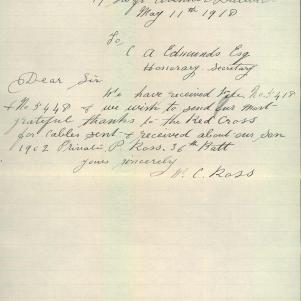 May 11th 1918
To,
C A Edmunds Esq
Honorary Secretary
Dear Sir
We have received No 5418
& No 5448 & we wish to send our most
grateful thanks to the Red Cross
for Cables sent & received about our son
1902 Private P. Ross. 36th Batt
yours sincerely
C. Ross